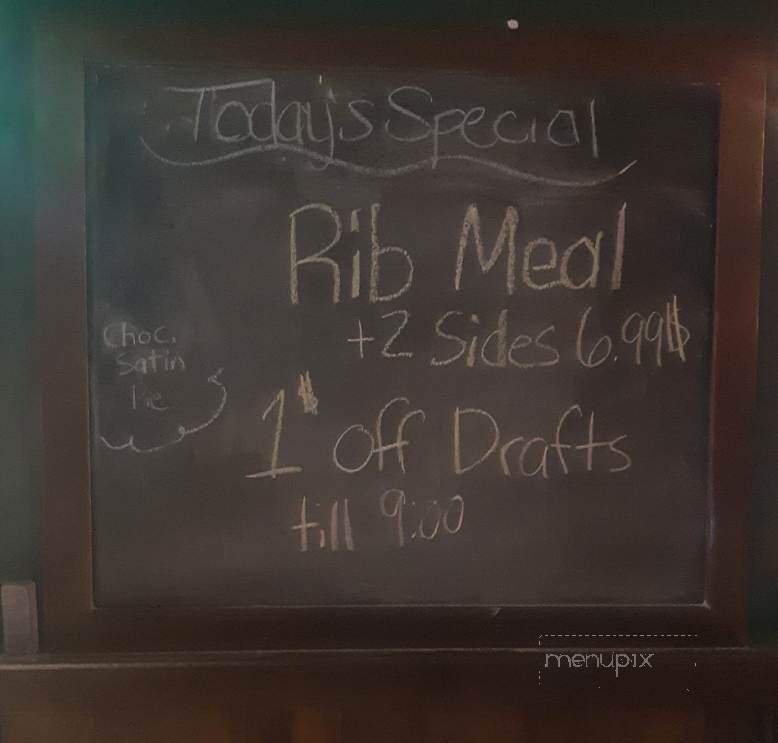 Today's Special
Rib Meal
+2 Sides 6.99$
Choc.
Satin
Pie
1$ off Drafts
till 9:00
menupix